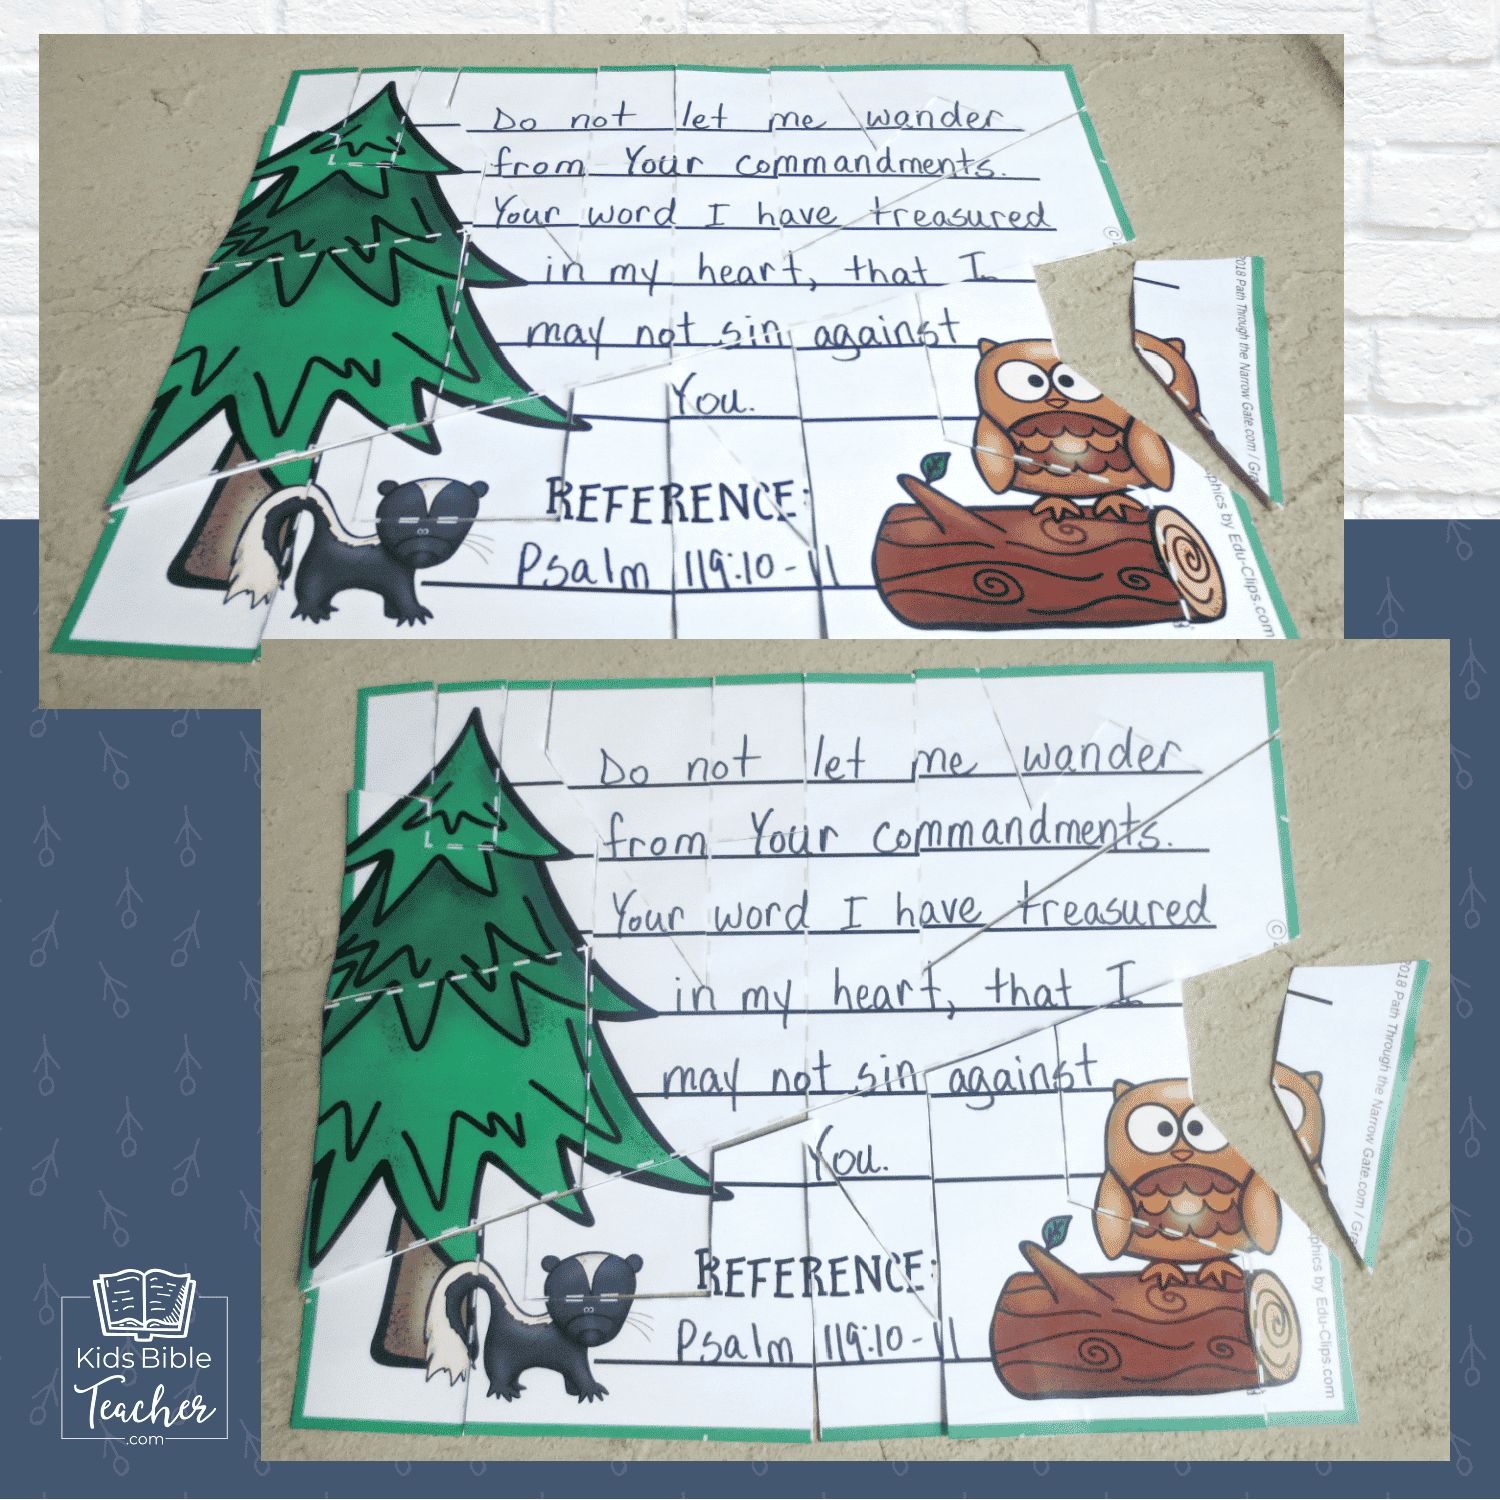 Do not let me wander
from Your commandments.
Your word I have treasured
in my heart, that I
may not sin against
You.
REFERENCE:
Psalm 119:10-11
©
2018 Path Through the Narrow Gate.com / Gra
phics by Edu-Clips.com
Do not let me wander
from Your commandments.
Your word I have treasured
in my heart, that I
may not sin against
You.
REFERENCE:
Psalm 119:10-11
©
2018 Path Through the Narrow Gate.com / Gra
phics by Edu-Clips.com
Kids Bible
Teacher
.com